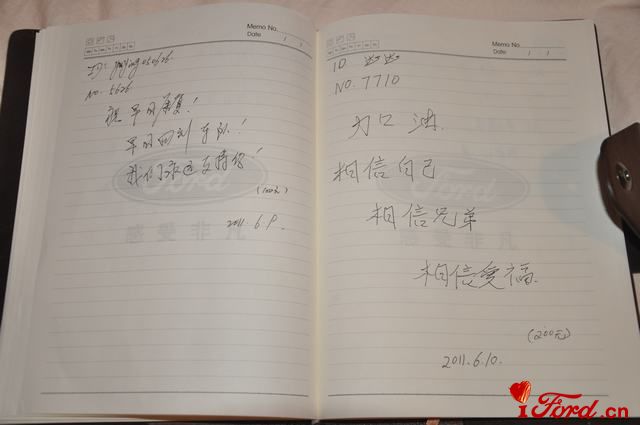 Memo No.
Date / /
NO. 5626
祝早日康复!
早日回到车队!
我们永远支持你!
(100元)
2011.6.9.
Ford
感受非凡
Memo No.
Date / /
ID
NO. 7710
加油.
相信自己
相信兄弟
相信爱福.
(200元)
2011.6.10.
Ford
感受非凡
iFord.cn